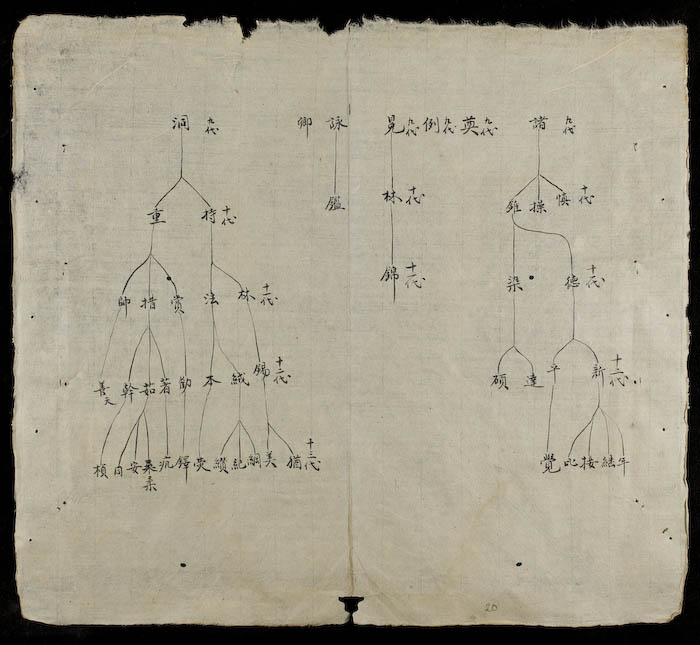 九代 諸 九代 英 九代 例 九代 晃 詠 卿 九代 洞
十代 慎 操 錐 十代 林 鑑 十代 持 重
十一代 德 染 十一代 錦 十一代 林 法 賞 措 帥
十二代 新 平 達 碩 十二代 錫 絨 本 勤 著 茹 幹 善 夭
平 結 按 比 覺 十三代 猶 美 綱 紀 纘 鐸 安 楨
20